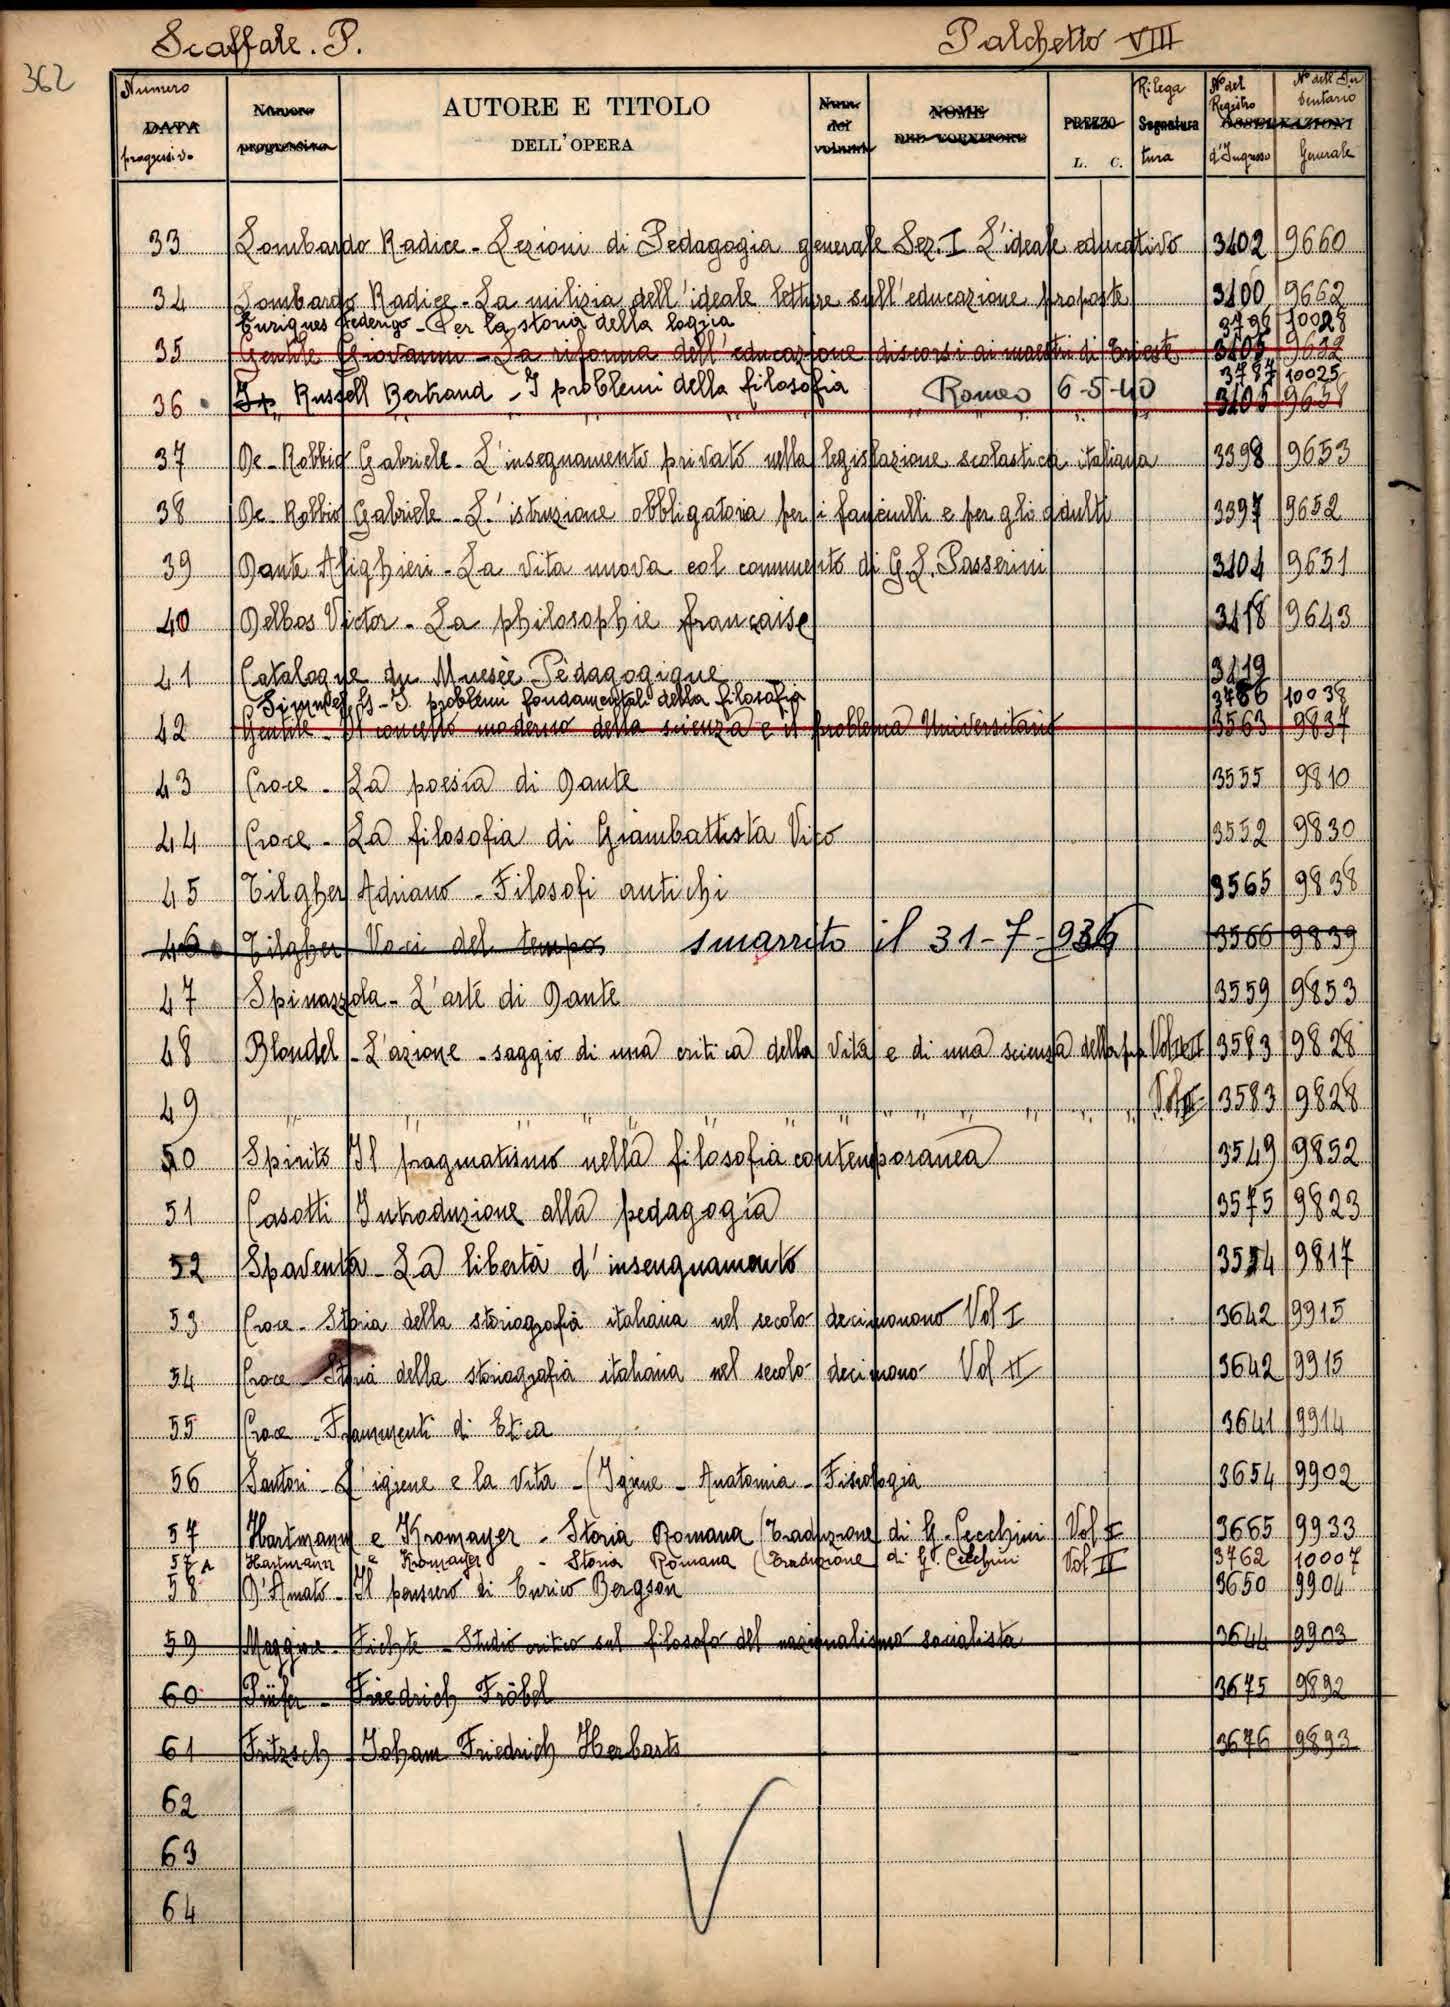 Scaffale. P. Palchetto VIII
362
Numero DATA progressivo Numero progressivo AUTORE E TITOLO DELL'OPERA Num. dei volumi NOME DEL FORNITORE PREZZO L. C. Rilega Segnatura tura N° del Registro d'Ingresso OSSERVAZIONI N° dell' In ventario Generale
33 Lombardo Radice - Lezioni di Pedagogia generale Sez. I L'ideale educativo 3402 9660
34 Lombardo Radice - La milizia dell'ideale letture sull'educazione proposte 3400 9662
Enriques Federigo - Per la storia della logica 3796 10028
35 Gentile Giovanni - La riforma dell'educazione discorsi ai maestri di Trieste 3405 9632
Russell Bertrand - I problemi della filosofia Romeo 6-5-40 3787 10025
36 " " " " " " " " 3405 9658
37 De-Robbio Gabriele - L'insegnamento privato nella legislazione scolastica italiana 3398 9653
38 De-Robbio Gabriele - L'istruzione obbligatoria per i fanciulli e per gli adulti 3397 9652
39 Dante Alighieri - La vita nuova col commento di G.L. Passerini 3404 9651
40 Delbos Victor - La philosophie française 3418 9643
41 Catalogue du Museèe Pèdagogique 3419
Simmel G - I problemi fondamentali della filosofia 3786 10038
42 Gentile - Il concetto moderno della scienza e il problema Universitario 3563 9837
43 Croce - La poesia di Dante 3555 9810
44 Croce - La filosofia di Giambattista Vico 3552 9830
45 Tilgher Adriano - Filosofi antichi 3565 9838
46 Tilgher Voci del tempo smarrito il 31-7-934 3566 9839
47 Spinazzola - L'arte di Dante 3559 9853
48 Blondel - L'azione - saggio di una critica della vita e di una scienza della pra Vol I e II 3583 9828
49 " " " " " " " " " " " " " Vol II 3583 9828
50 Spirito Il pragmatismo nella filosofia contemporanea 3549 9852
51 Casotti Introduzione alla pedagogia 3575 9823
52 Spaventa - La libertà d'insengnamento 3554 9817
53 Croce - Storia della storiografia italiana nel secolo decimonono Vol I 3642 9915
54 Croce - Storia della storiografia italiana nel secolo decimono Vol II 3642 9915
55 Croce - Frammenti di Etica 3641 9914
56 Santori - L'igiene e la vita - (Igiene - Anatomia - Fisiologia 3654 9902
57 Hartmann e Kromayer - Storia Romana (Traduzione di G. Cecchini Vol I 3665 9933
57A Hartmann e Kromayer - Storia Romana (Traduzione di G. Cecchini Vol II 3762 10007
58 D'Amato - Il pensiero di Enrico Bergson 3650 9904
59 Maggiore - Fichte - Studio critico sul filosofo del nazionalismo socialista 3644 9903
60 Prüfer - Friedrich Fröbel 3675 9892
61 Fritzsch Joham Friedrich Herbarts 3676 9893
62
63
64